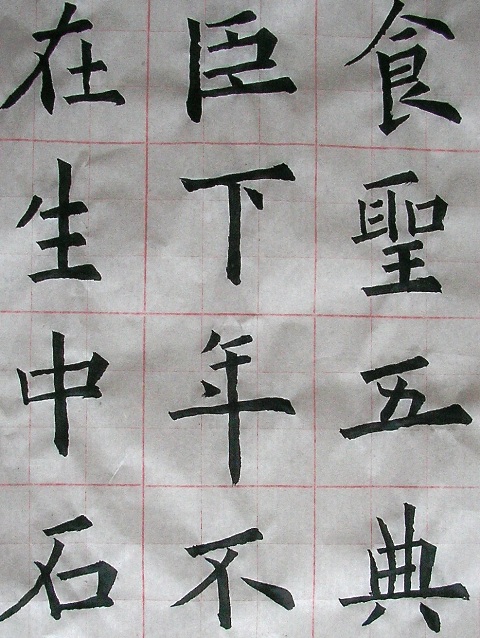 食聖五典
臣下年不
在生中石